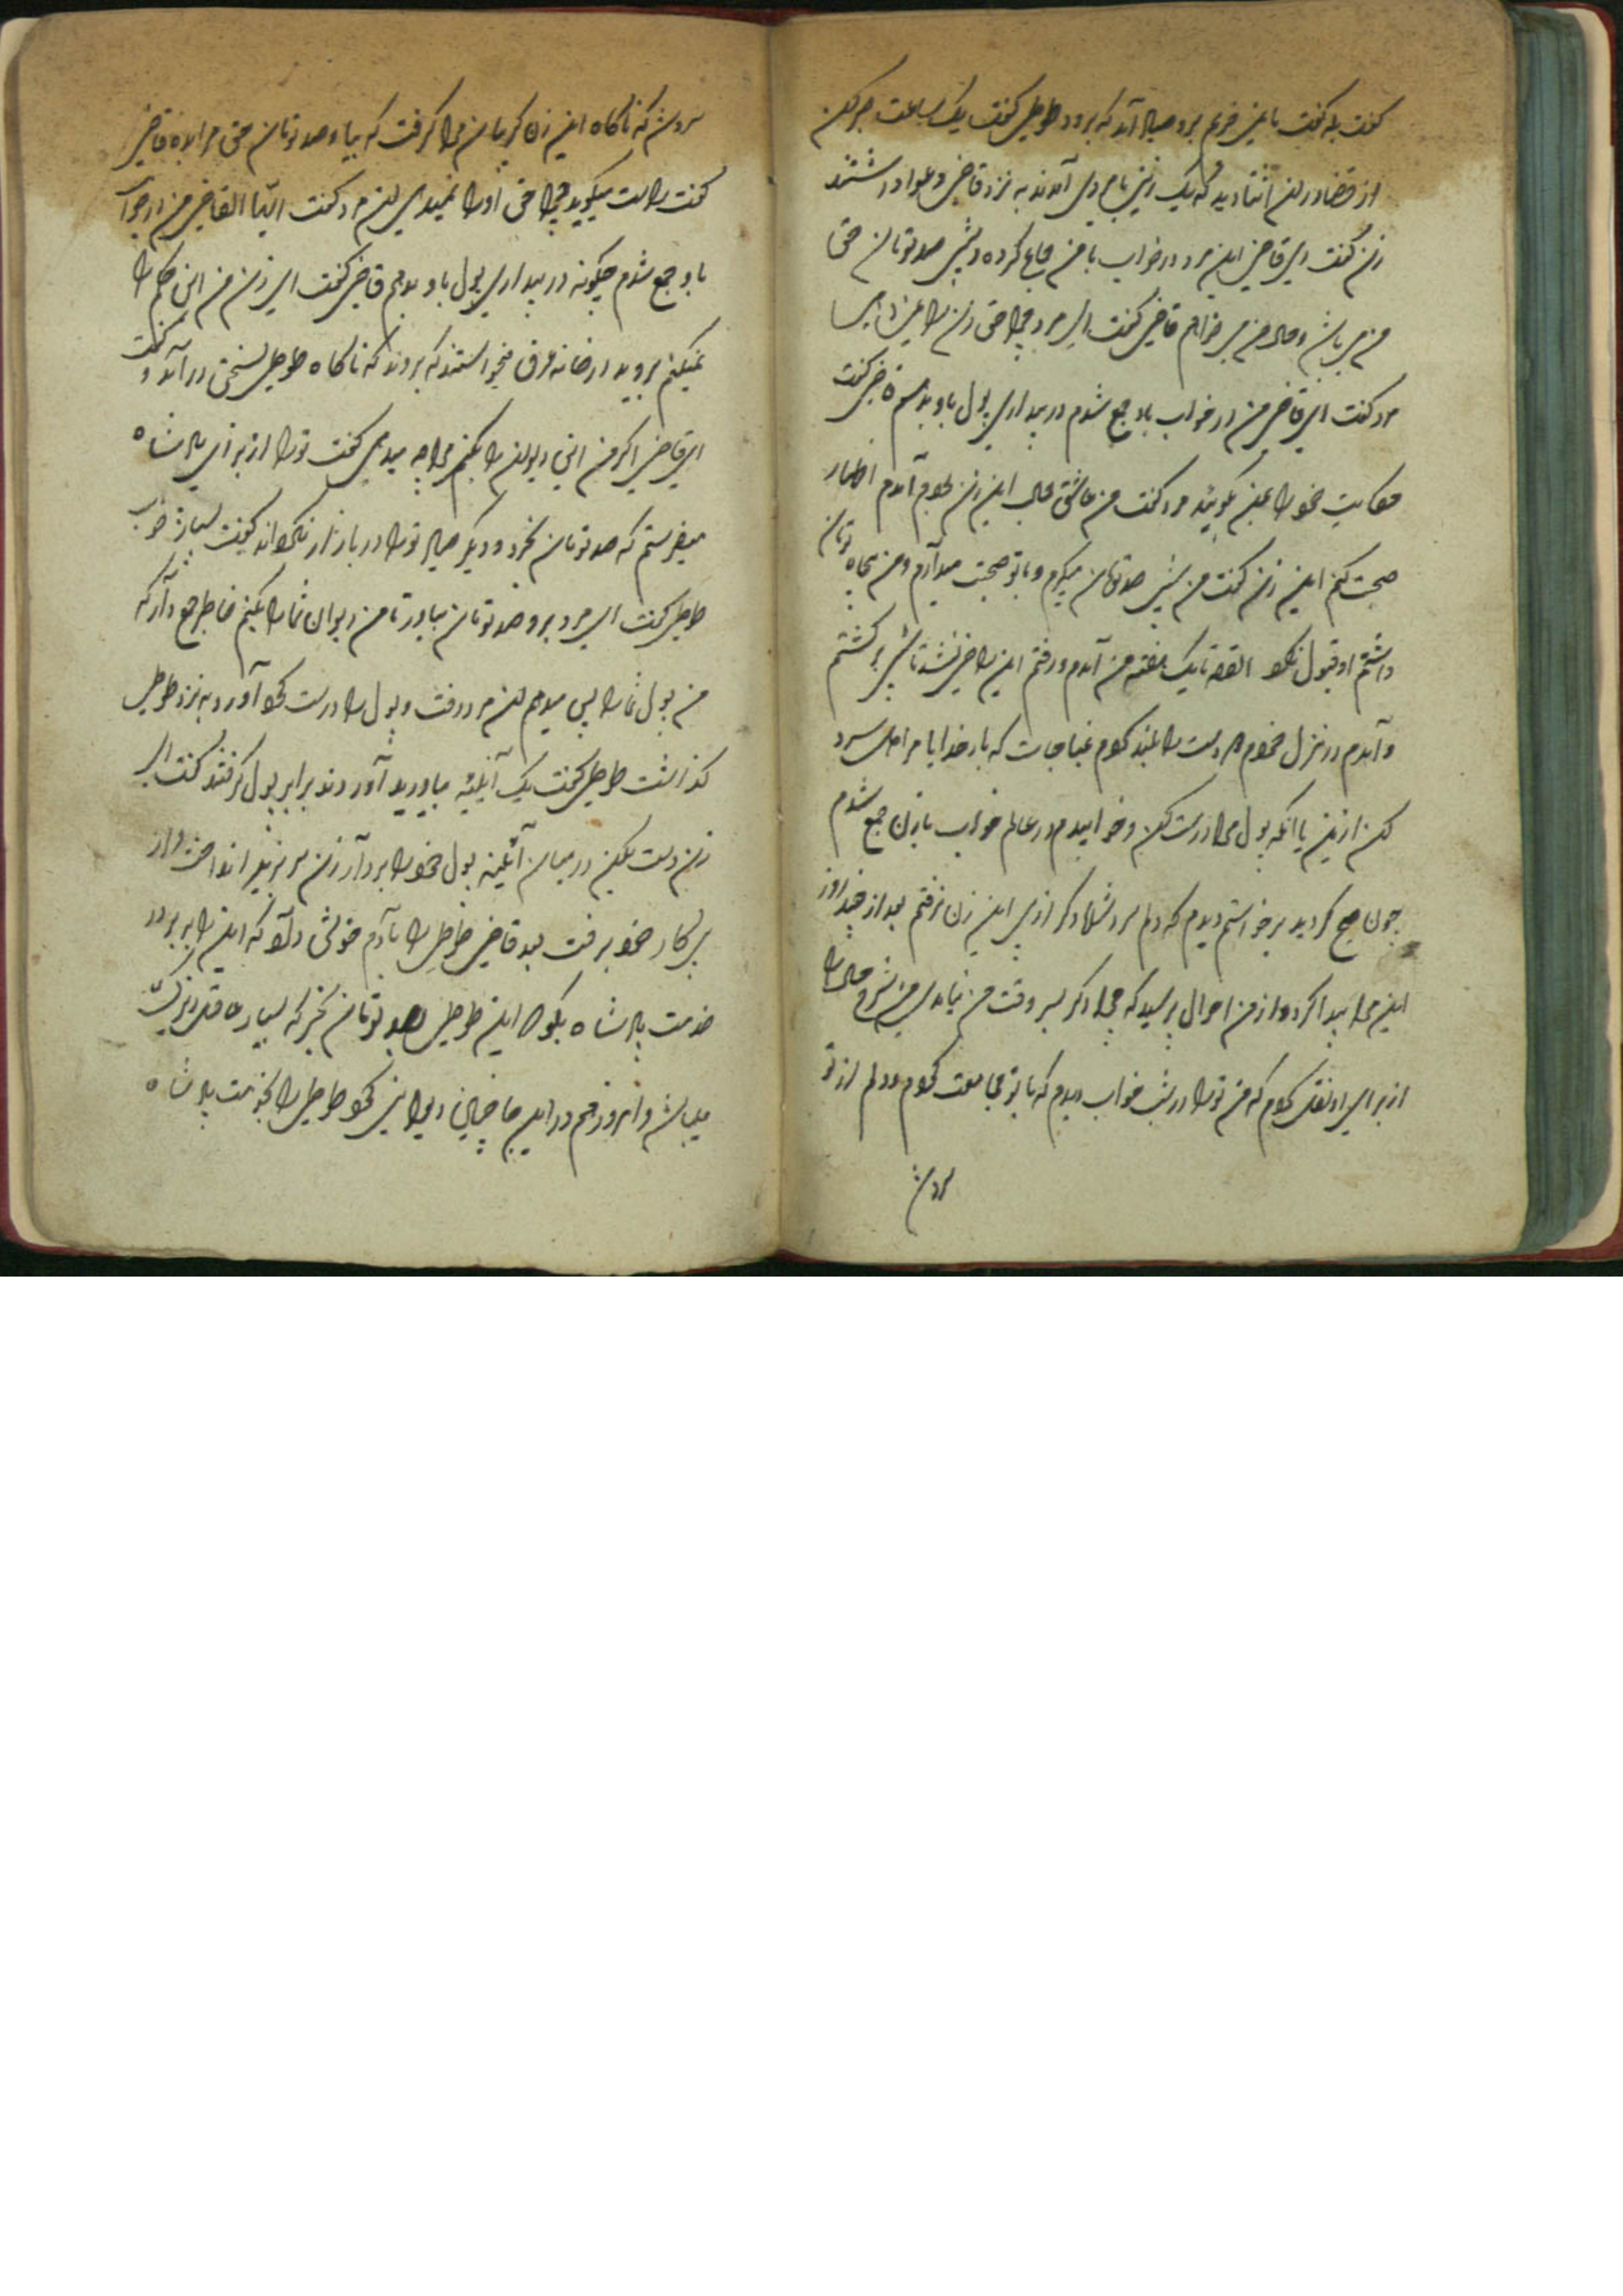 گفت بله گفت باین خوبم برد صیاد آمد که برود طوطی گفت یک ساعت صبر کن
از قضا در این اثنا دید که یک زنی با مردی آمدند به نزد قاضی دعوا داشتند
زن گفت ای قاضی این مرد در خواب با من جماع کرده و پیش صد تومان حق
من می باشد و حالا من می خواهم قاضی گفت ای مرد چرا حق زن را نمیدهی
مرد گفت ای قاضی من در خواب باو جمع شدم در بیداری پول باو بدهم قاضی گفت
حکایت خود را بمن بگوئید مرد گفت من عاشق جمال این زن بودم آمدم اظهار
صحبت کنم این زن گفت من شبی صد تومان میگیرم و با تو صحبت میدارم و من پنجاه تومان
داشتم او قبول نکرد القصه تا یک هفته من آمدم و رفتم این راضی نشد تا شبی برگشتم
و آمدم در منزل خودم و دست را بلند کردم بمناجات که بار خدایا مرا دل سرد
کن ازین یا آنکه پول مرا درست کن و خوابیدم در عالم خواب با زن جمع شدم
چون صبح گردید برخواستم دیدم که دلم سرد شد دگر از پی این زن نرفتم بعد از چند روز
این مرا پیدا کرد و از من احوال پرسید که چرا دگر بسر وقت من نیامدی من شرح حال را
از برای او نقل کردم که من تو را در شب خواب دیدم که با تو مجامعت کردم و دلم از تو
سرد شد
سرد شد که ناگاه این زن گریبان مرا گرفت که بیا و صد تومان حق مرا بده قاضی
گفت راست میگوید چرا حق او را نمیدهی این مرد گفت ایها القاضی من در خواب
باو جمع شدم چگونه در بیداری پول باو بدهم قاضی گفت ای زن من این حکم را
نمیکنم بروید در خانه عرف میخواستند که بروند که ناگاه طوطی بسخن در آمد و گفت
ای قاضی اگر من این دیوان را بکنم مرا چه میدهی گفت تو را از برای پادشاه
میفرستم که صد تومان بخرد و دیگر صیاد تو را در بازار نگرداند گفت بسیار خوب
طوطی گفت ای مرد برو صد تومان بیاور تا من دیوان شما را بکنم خاطر جمع دار که
من پول شما را پس میدهم این مرد رفت و پول را درست کرد آورد به نزد طوطی
گذاشت طوطی گفت یک آئینه بیاورید آوردند برابر پول گرفتند گفت ای
زن دست بکن در میان آئینه پول خود را بردار زن سر بزیر انداخت و از
پی کار خود برفت بعد قاضی طوطی را بآدم خودش داد که این را ببر در
خدمت پادشاه بگو که این طوطی بصد تومان بخر که بسیار عاقل و زیرک
میباشد و امروز هم در این جا چنان دیوانی کرد طوطی را بخدمت پادشاه